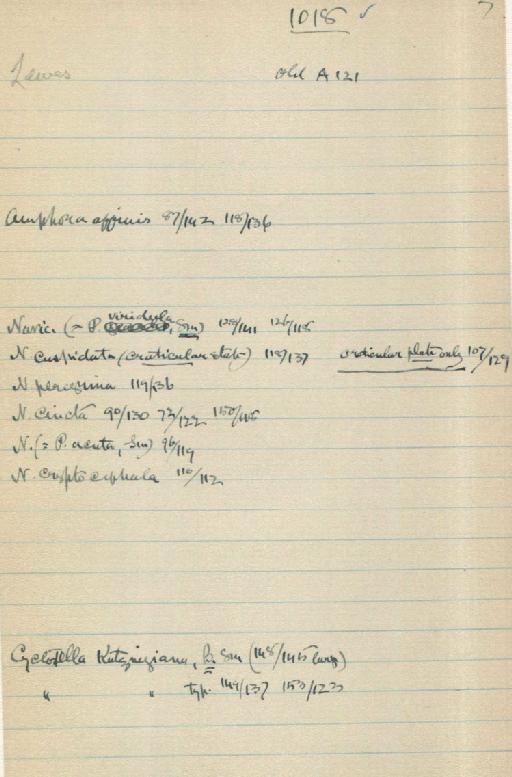 1018 ✓ 7
Lewes old A 121
Amphora affinis 87/142 118/136
viridula
Navic. (= P. , Sm)
N cuspidata (craticular state) 118/137 craticular plate only 107/129
N peregrina 119/136
N. cincta 90/130 73/122
N. (= P. acuta, Sm) 96/119
N. cryptocephala 110/112
Cyclotella Kutzingiana, Sm (148/145 large)
" " type 149/137 153/123